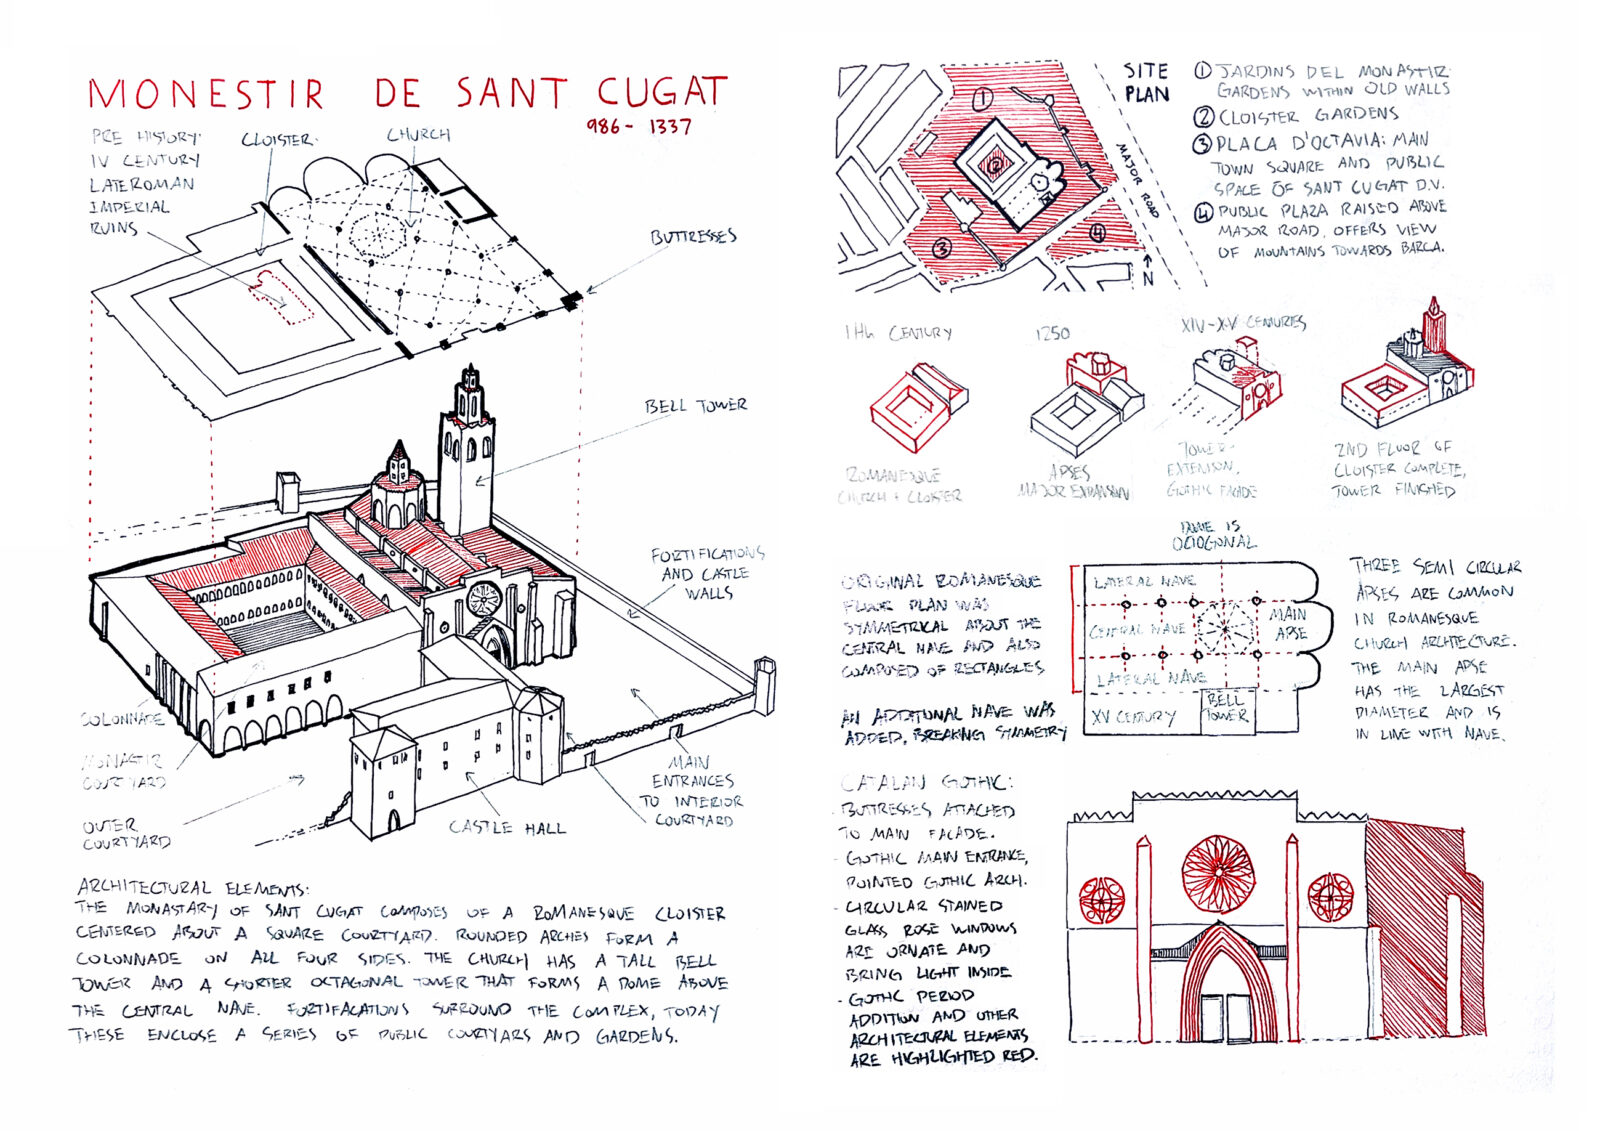 MONESTIR DE SANT CUGAT
986 - 1337
PRE HISTORY:
IV CENTURY
LATEROMAN
IMPERIAL
RUINS
CLOISTER
CHURCH
BUTTRESSES
BELL TOWER
FORTIFICATIONS
AND CASTLE
WALLS
COLONNADE
MONASTIR
COURTYARD
OUTER
COURTYARD
CASTLE HALL
MAIN
ENTRANCES
TO INTERIOR
COURTYARD
ARCHITECTURAL ELEMENTS:
THE MONASTARY OF SANT CUGAT COMPOSES OF A ROMANESQUE CLOISTER
CENTERED ABOUT A SQUARE COURTYARD. ROUNDED ARCHES FORM A
COLONNADE ON ALL FOUR SIDES. THE CHURCH HAS A TALL BELL
TOWER AND A SHORTER OCTAGONAL TOWER THAT FORMS A DOME ABOVE
THE CENTRAL NAVE. FORTIFACATIONS SURROUND THE COMPLEX, TODAY
THESE ENCLOSE A SERIES OF PUBLIC COURTYARS AND GARDENS.
SITE
PLAN
1 JARDINS DEL MONASTIR:
GARDENS WITHIN OLD WALLS
2 CLOISTER GARDENS
3 PLACA D'OCTAVIA: MAIN
TOWN SQUARE AND PUBLIC
SPACE OF SANT CUGAT D.V.
4 PUBLIC PLAZA RAISED ABOVE
MAJOR ROAD, OFFERS VIEW
OF MOUNTAINS TOWARDS BARCA.
1
2
3
4
MAJOR ROAD
N
11th CENTURY
ROMANESQUE
CHURCH + CLOISTER
1250
APSES
MAJOR EXPANSION
XIV-XV CENTURIES
TOWER
EXTENSION,
GOTHIC FACADE
2ND FLOOR OF
CLOISTER COMPLETE,
TOWER FINISHED
ORIGINAL ROMANESQUE
FLOOR PLAN WAS
SYMMETRICAL ABOUT THE
CENTRAL NAVE AND ALSO
COMPOSED OF RECTANGLES
AN ADDITIONAL NAVE WAS
ADDED, BREAKING SYMMETRY
DOME IS
OCTOGONAL
LATERAL NAVE
CENTRAL NAVE
MAIN
APSE
LATERAL NAVE
XV CENTURY
BELL
TOWER
THREE SEMI CIRCULAR
APSES ARE COMMON
IN ROMANESQUE
CHURCH ARCHITECTURE.
THE MAIN APSE
HAS THE LARGEST
DIAMETER AND IS
IN LINE WITH NAVE.
CATALAN GOTHIC:
- BUTTRESSES ATTACHED
TO MAIN FACADE.
- GOTHIC MAIN ENTRANCE,
POINTED GOTHIC ARCH.
- CIRCULAR STAINED
GLASS ROSE WINDOWS
ARE ORNATE AND
BRING LIGHT INSIDE
- GOTHC PERIOD
ADDITION AND OTHER
ARCHITECTURAL ELEMENTS
ARE HIGHLIGHTED RED.